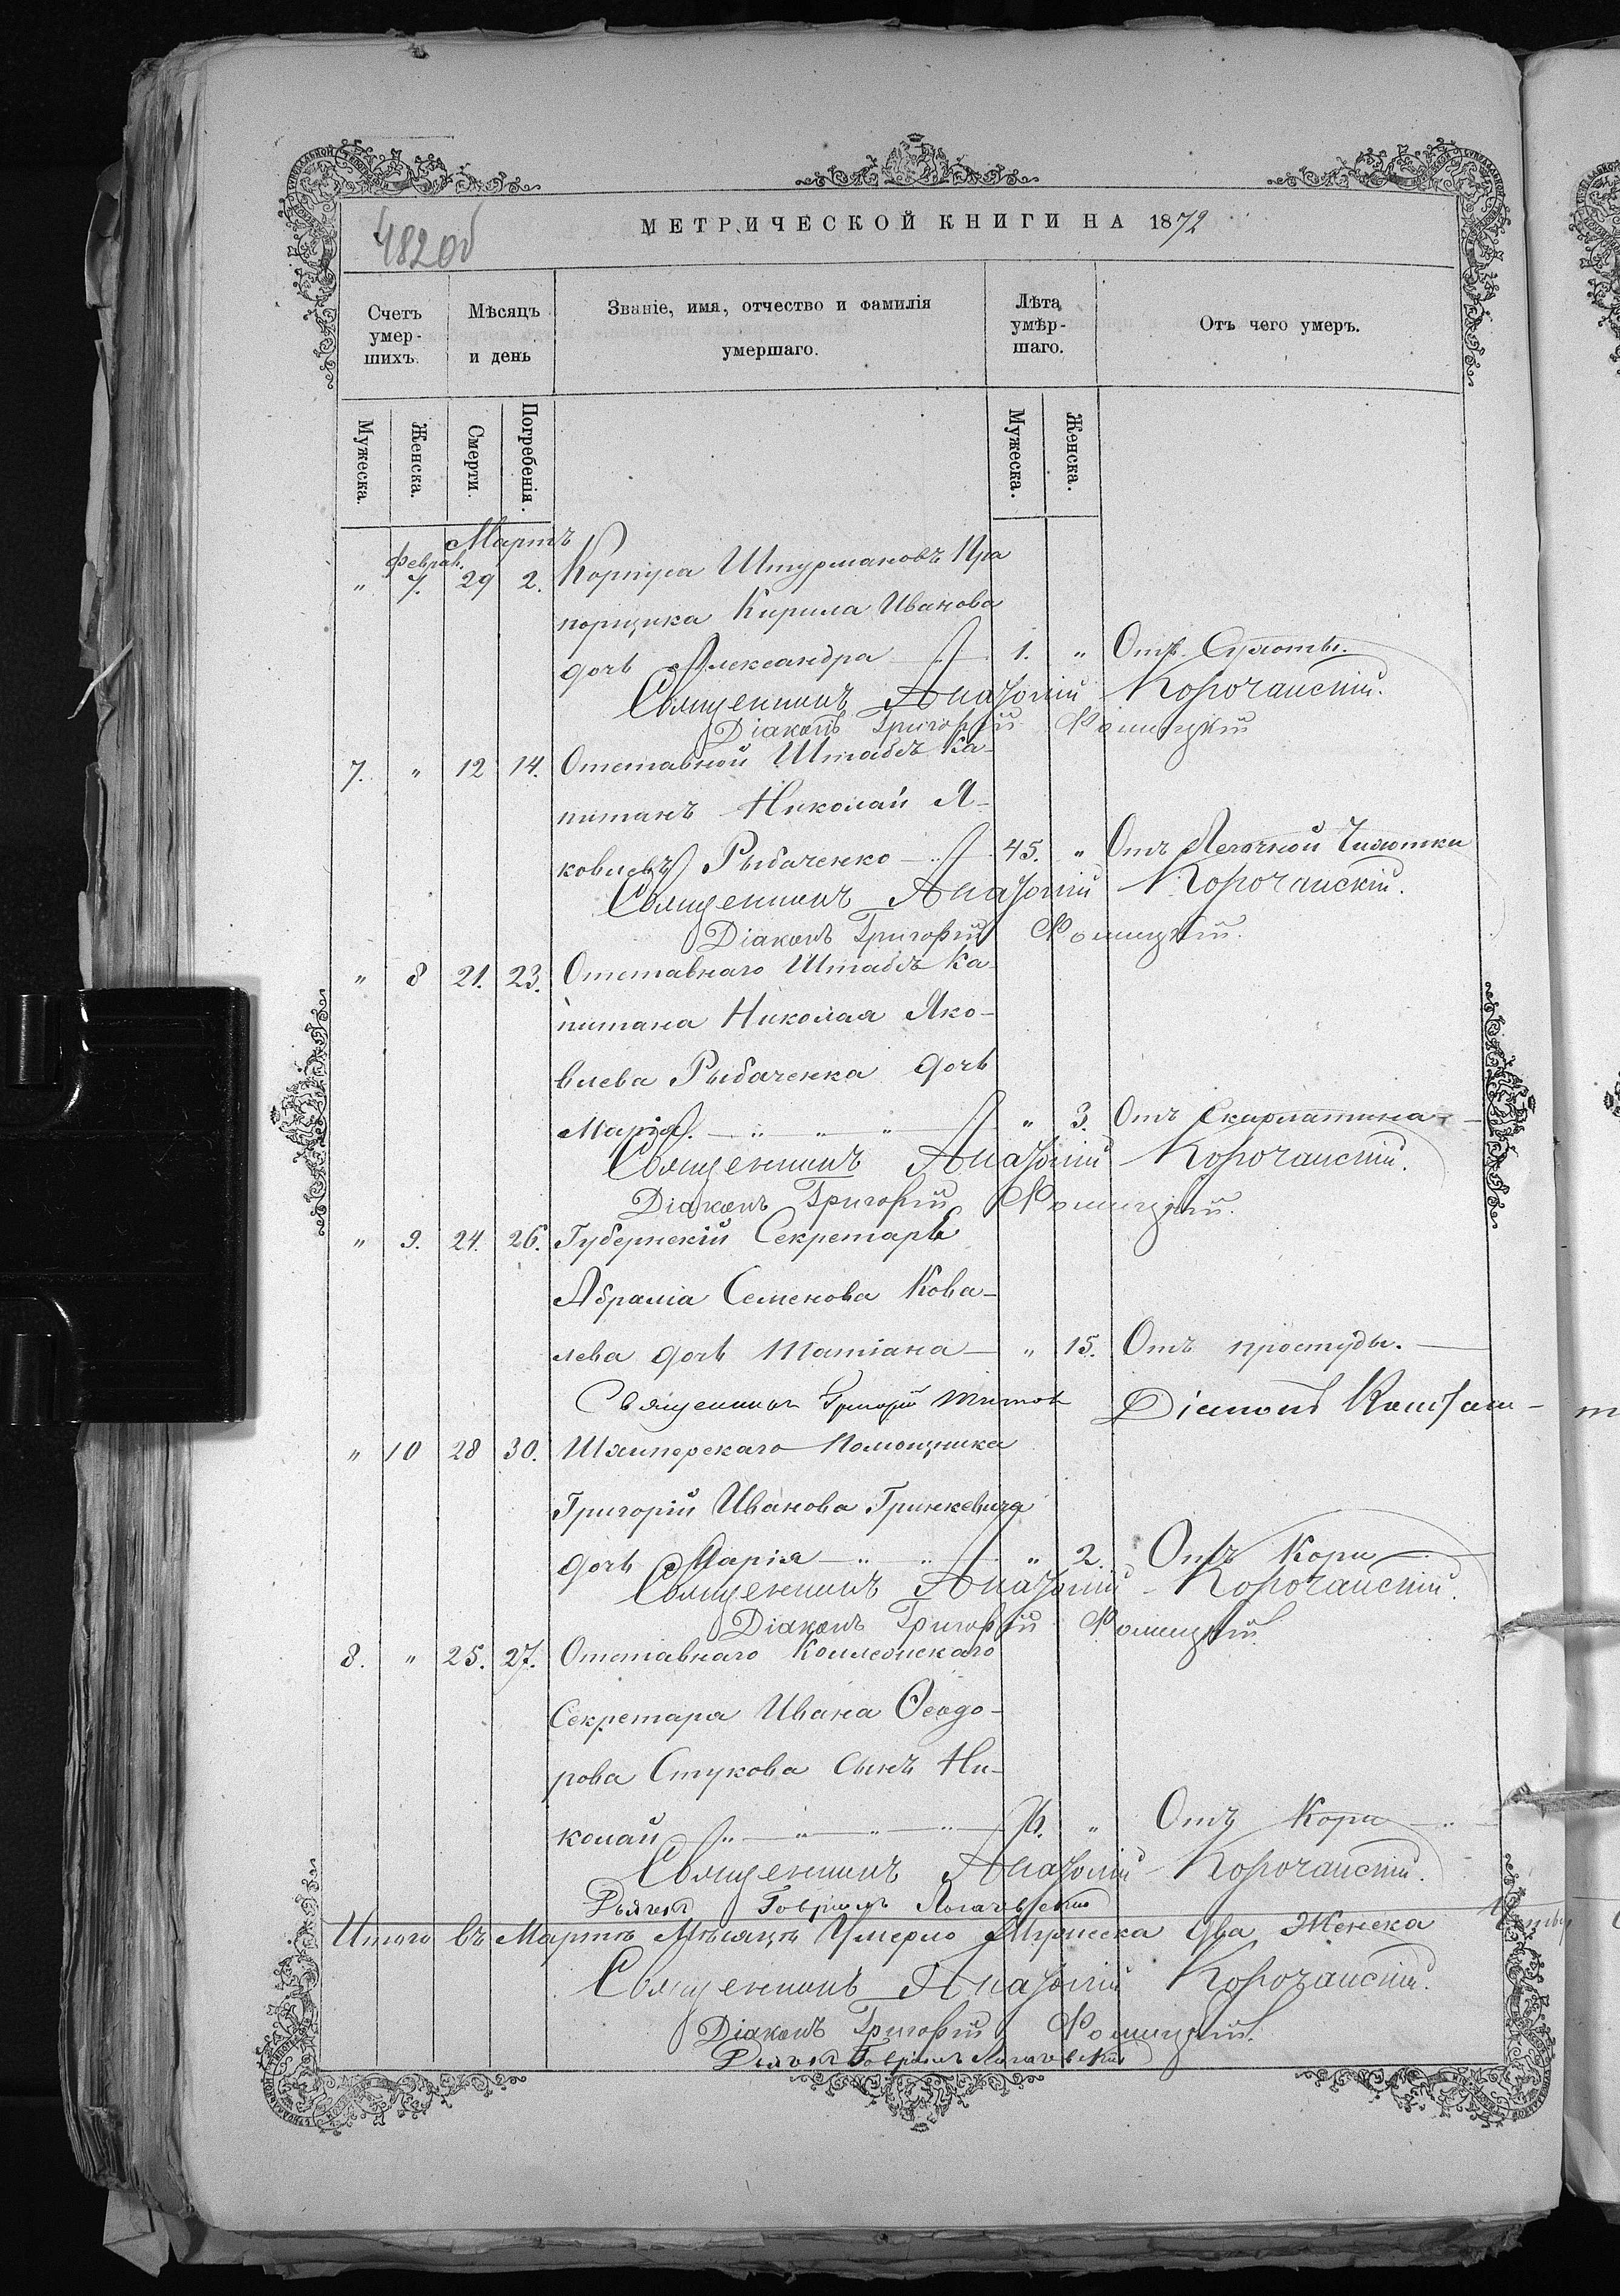 482 об
МЕТРИЧЕСКОЙ КНИГИ НА 1872
Счетъ умер-шихъ.
Мѣсяцъ и день
Званіе, имя, отчество и фамилія умершаго.
Лѣта умѣр-шаго.
Отъ чего умеръ.
Мужеска. Женска. Смерти. Погребенія. Мужеска. Женска.
Мартъ
Феврал.
" 7. 29 2. Корпуса Штурмановъ Пра
порщика Кирила Иванова
дочь Александра 1. " Отъ Сухоты.
Священникъ Анатолій Корочанскій.
Діаконъ Григорій
7. " 12 14. Отставной Штабсъ Ка-
питанъ Николай Я-
ковлевъ Рыбаченко 45. " Отъ Легочной Чахотки
Священникъ Анатолій Корочанскій.
Діаконъ Григорій
" 8 21. 23. Отставнаго Штабсъ Ка-
питана Николая Яко-
влева Рыбаченка дочь
Марія. " 3. Отъ Скарлатина
Священникъ Анатолій Корочанскій.
Діаконъ Григорій
" 9. 24. 26. Губернскій Секретарь
Абрамія Семенова Кова-
лева дочь Татіана " 15. Отъ простуды.
Священникъ Григорій Титовъ Діаконъ
" 10 28 30. Шхиперскаго Помощника
Григорій Иванова Гринкевича
дочь Марія " 2. Отъ Кори
Священникъ Анатолій Корочанскій.
Діаконъ Григорій
8. " 25. 27. Отставнаго Коллежскаго
Секретаря Ивана Ѳеодо-
рова Стукова сынъ Ни-
колай " Отъ Кори
Священникъ Анатолій Корочанскій.
Дьячекъ Гавріилъ
Итого въ Мартѣ Мѣсяцѣ Умерло Мужеска два Женска
Священникъ Анатолій Корочанскій.
Діаконъ Григорій
Дьячекъ Гавріилъ